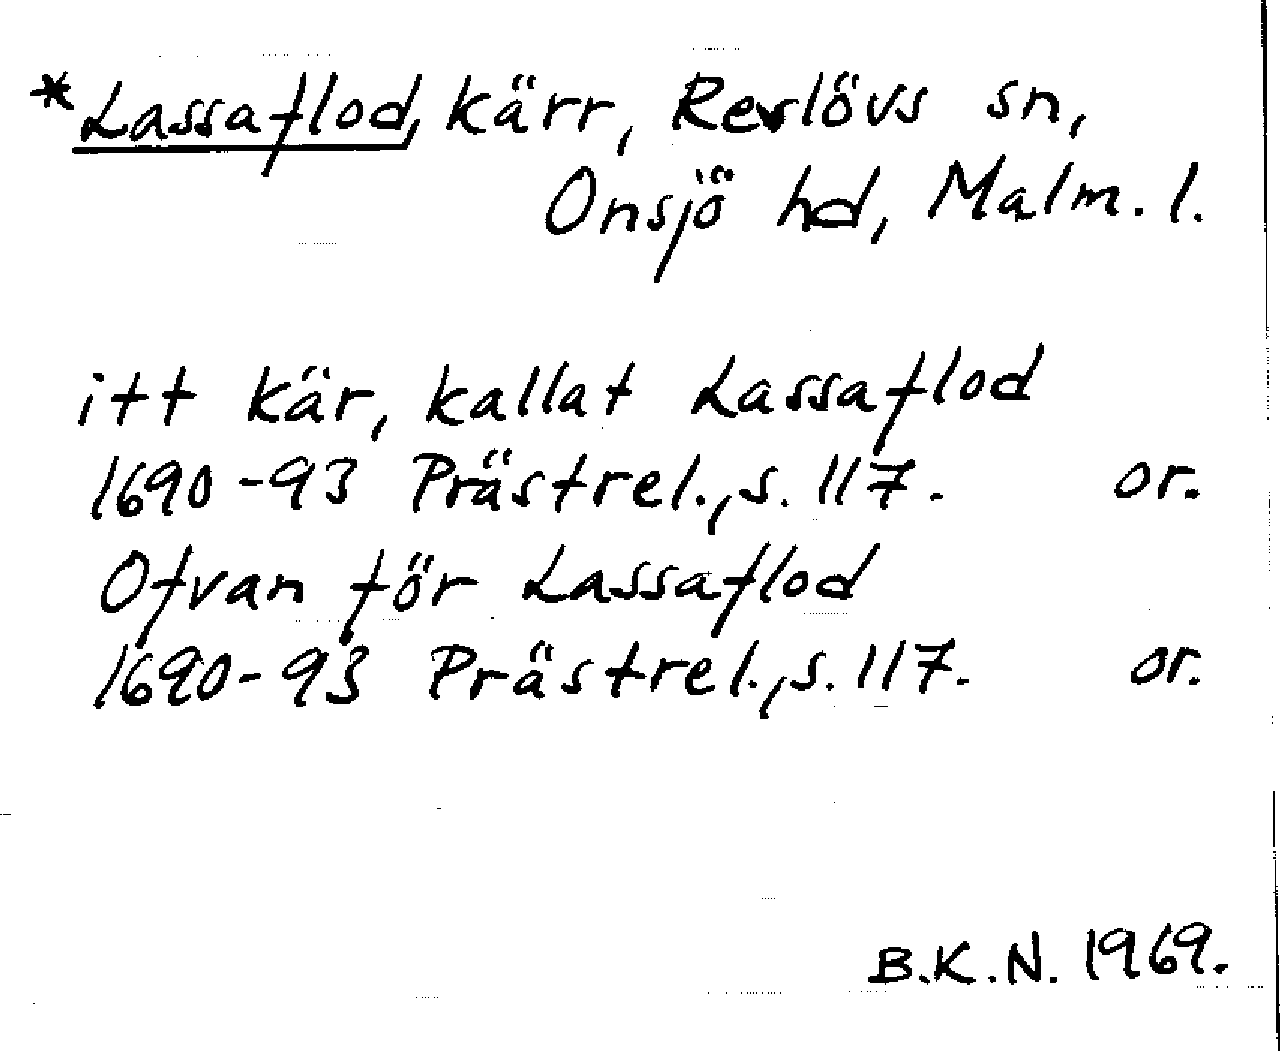 *Lassaflod, kärr, Revlövs sn,
Onsjö hd, Malm. l.
itt kär, kallat Lassaflod
1690-93 Prästrel., s. 117. or.
Ofvan för Lassaflod
1690-93 Prästrel., s. 117. or.
B.K.N. 1969.